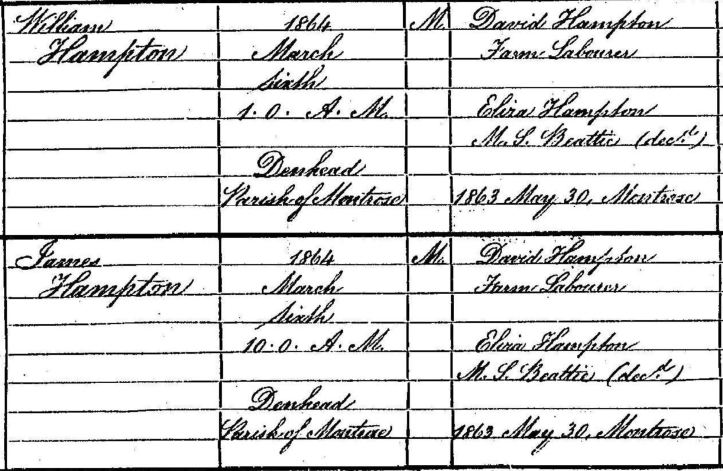 William
Hampton
1864
March
Sixth
1. 0. A. M.
Denhead
Parish of Montrose
M.
David Hampton
Farm Labourer
Eliza Hampton
M. S. Beattie (decd.)
1863 May 30, Montrose
James
Hampton
1864
March
Sixth
10. 0. A. M.
Denhead
Parish of Montrose
M.
David Hampton
Farm Labourer
Eliza Hampton
M. S. Beattie (decd.)
1863 May 30, Montrose